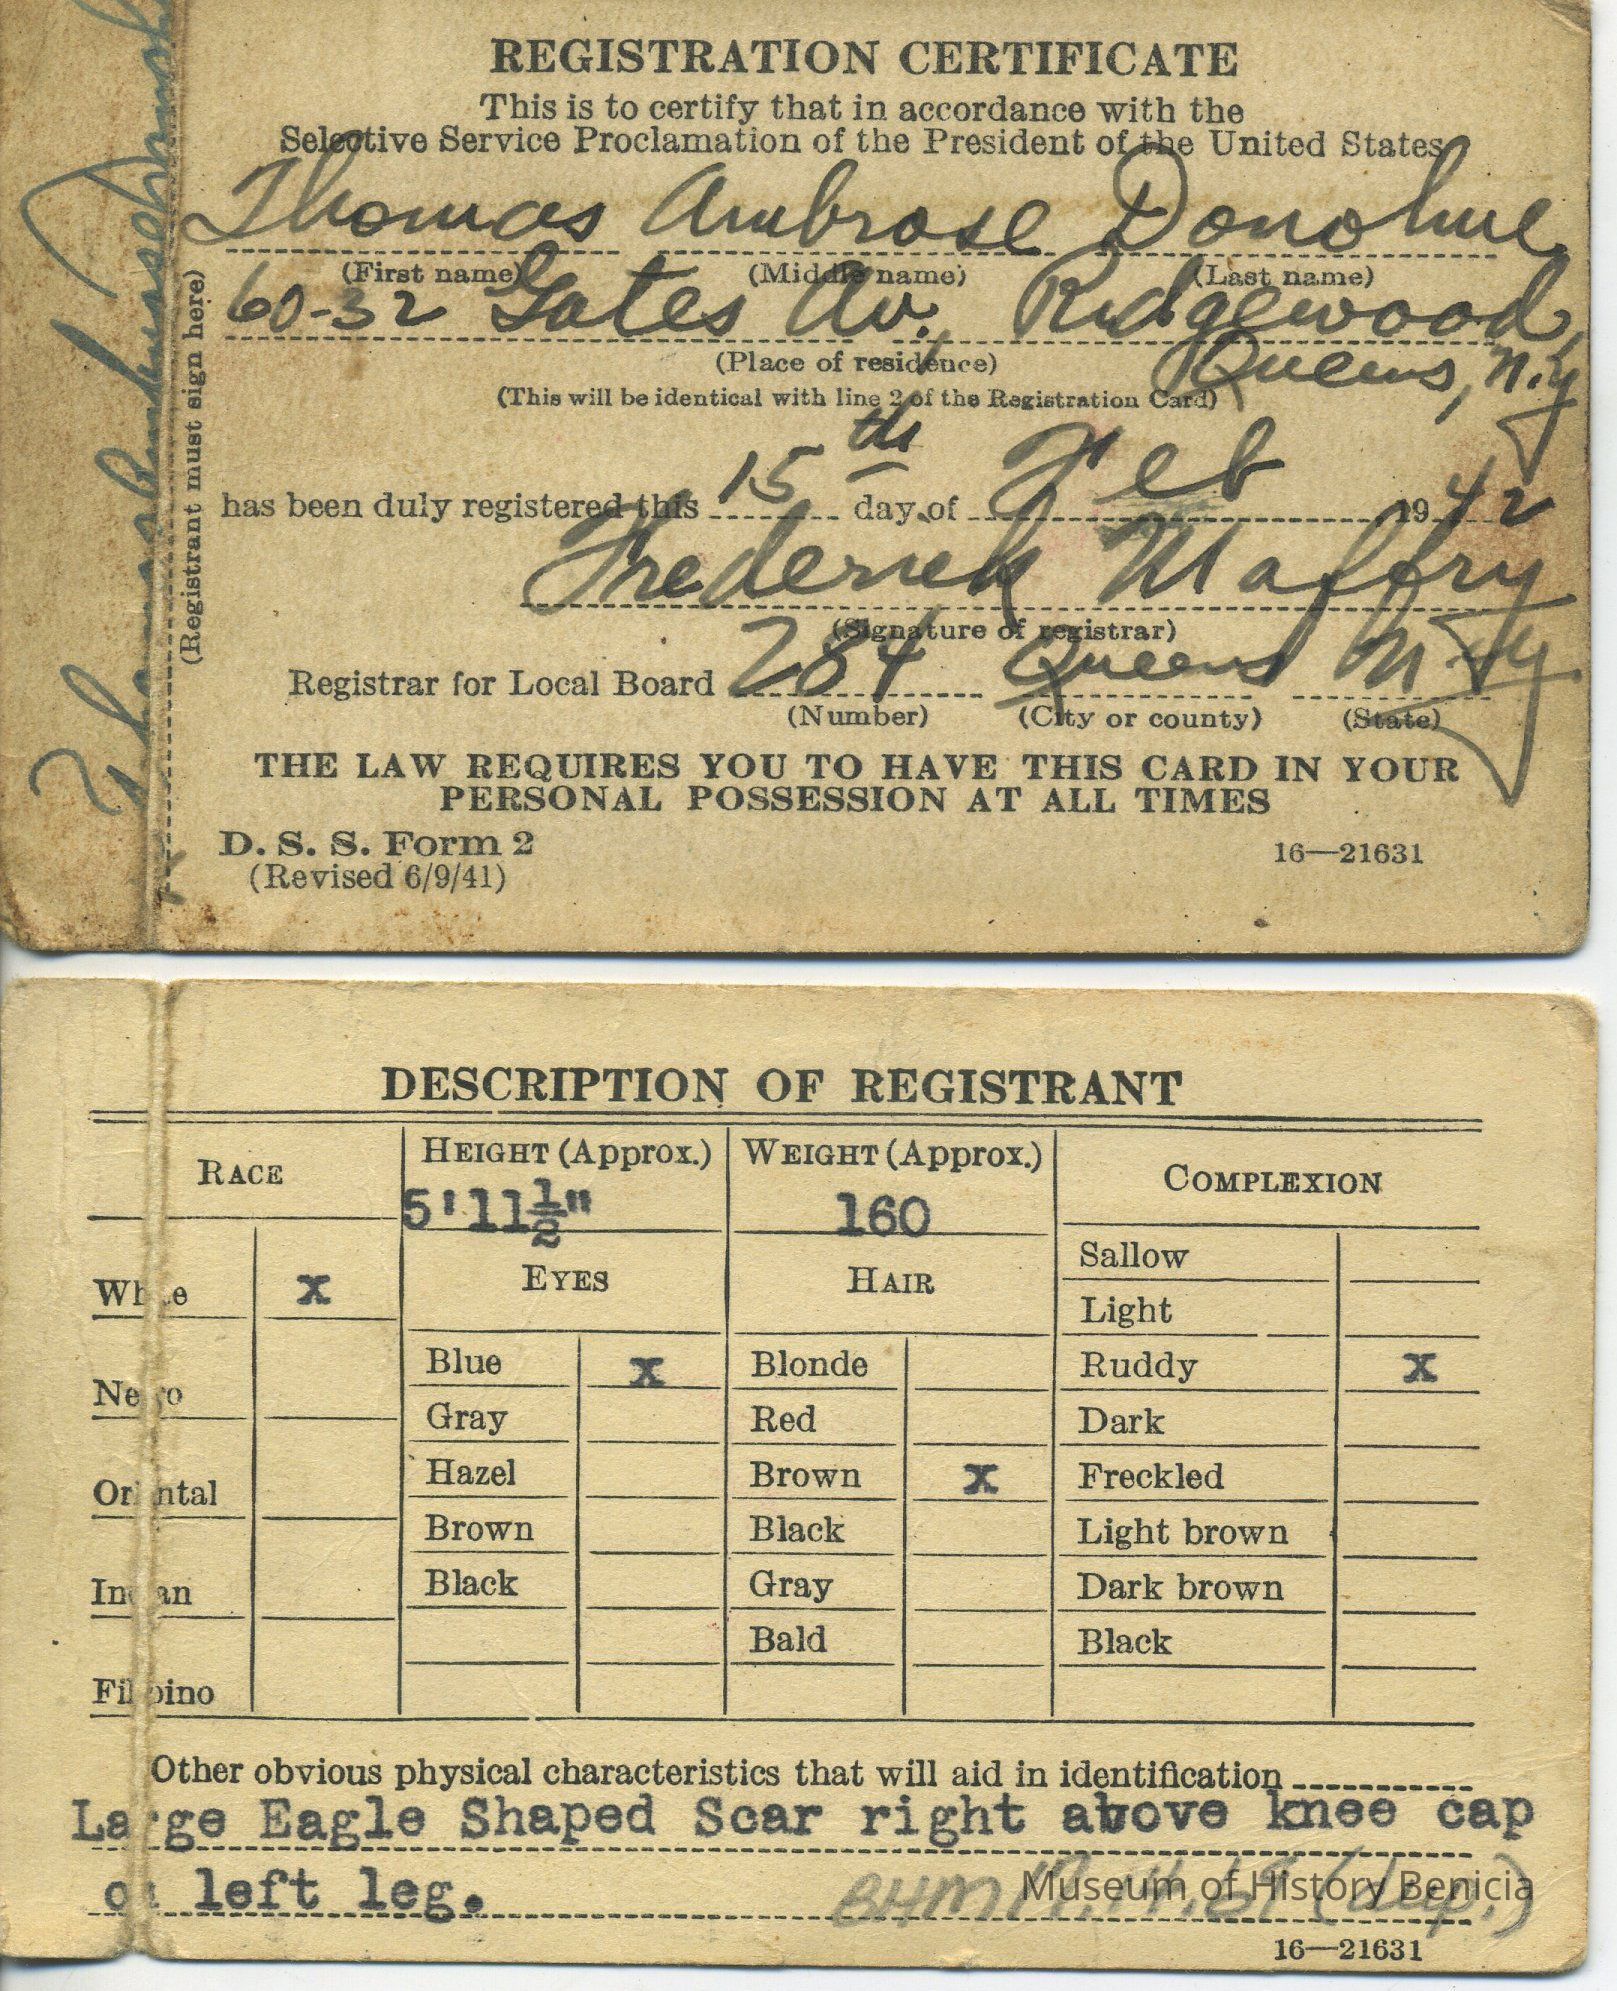 REGISTRATION CERTIFICATE
This is to certify that in accordance with the
Selective Service Proclamation of the President of the United States
Thomas Ambrose Donohue
(First name) (Middle name) (Last name)
60-32 Gates Av., Ridgewood,
Queens, N.Y
(Place of residence)
(This will be identical with line 2 of the Registration Card)
has been duly registered this 15th day of Feb 1942
Frederick
(Signature of registrar)
Registrar for Local Board 284 Queens N.Y
(Number) (City or county) (State)
THE LAW REQUIRES YOU TO HAVE THIS CARD IN YOUR
PERSONAL POSSESSION AT ALL TIMES
D. S. S. Form 2
(Revised 6/9/41)
16—21631
Thomas Ambrose Donohue
(Registrant must sign here)
DESCRIPTION OF REGISTRANT
RACE HEIGHT (Approx.) WEIGHT (Approx.) COMPLEXION
5'11½" 160
White x EYES HAIR Sallow
Light
Blue x Blonde Ruddy x
Negro Gray Red Dark
Hazel Brown x Freckled
Oriental Brown Black Light brown
Indian Black Gray Dark brown
Bald Black
Filipino
Other obvious physical characteristics that will aid in identification
Large Eagle Shaped Scar right above knee cap
on left leg.
Museum of History Benicia
16—21631